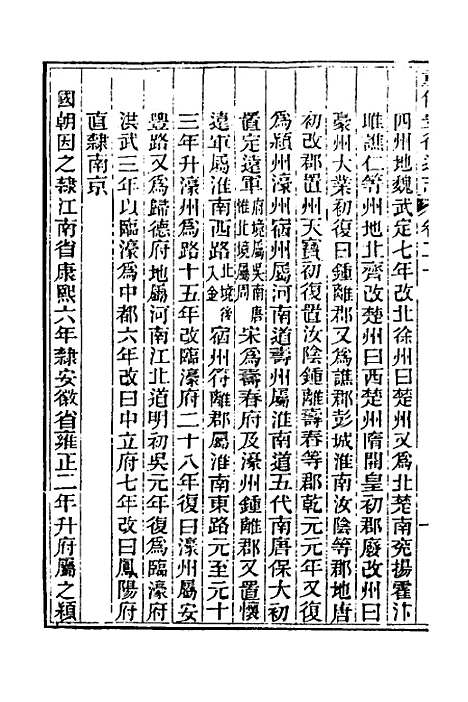 四州地魏武定七年改北徐州曰楚州又為北楚南兗揚霍汴
睢譙仁等州地北齊改楚州曰西楚州隋開皇初郡廢改州曰
豪州大業初復曰鍾離郡又為譙郡彭城淮南汝陰等郡地唐
初改郡置州天寶初復置汝陰鍾離壽春等郡乾元元年又復
為潁州濠州宿州屬河南道壽州屬淮南道五代南唐保大初
置定遠軍府境屬吳南唐惟北境屬周宋為壽春府及濠州鍾離郡又置懷
遠軍屬淮南西路北境後入金宿州符離郡屬淮南東路元至元十
三年升濠州為路十五年改臨濠府二十八年復曰濠州屬安
豐路又為歸德府地屬河南江北道明初吳元年復為臨濠府
洪武三年以臨濠為中都六年改曰中立府七年改曰鳳陽府
直隸南京
國朝因之隸江南省康熙六年隸安徽省雍正二年升府屬之潁